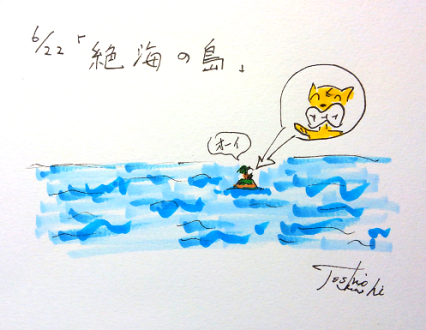 6/22「絶海の島」
オーイ